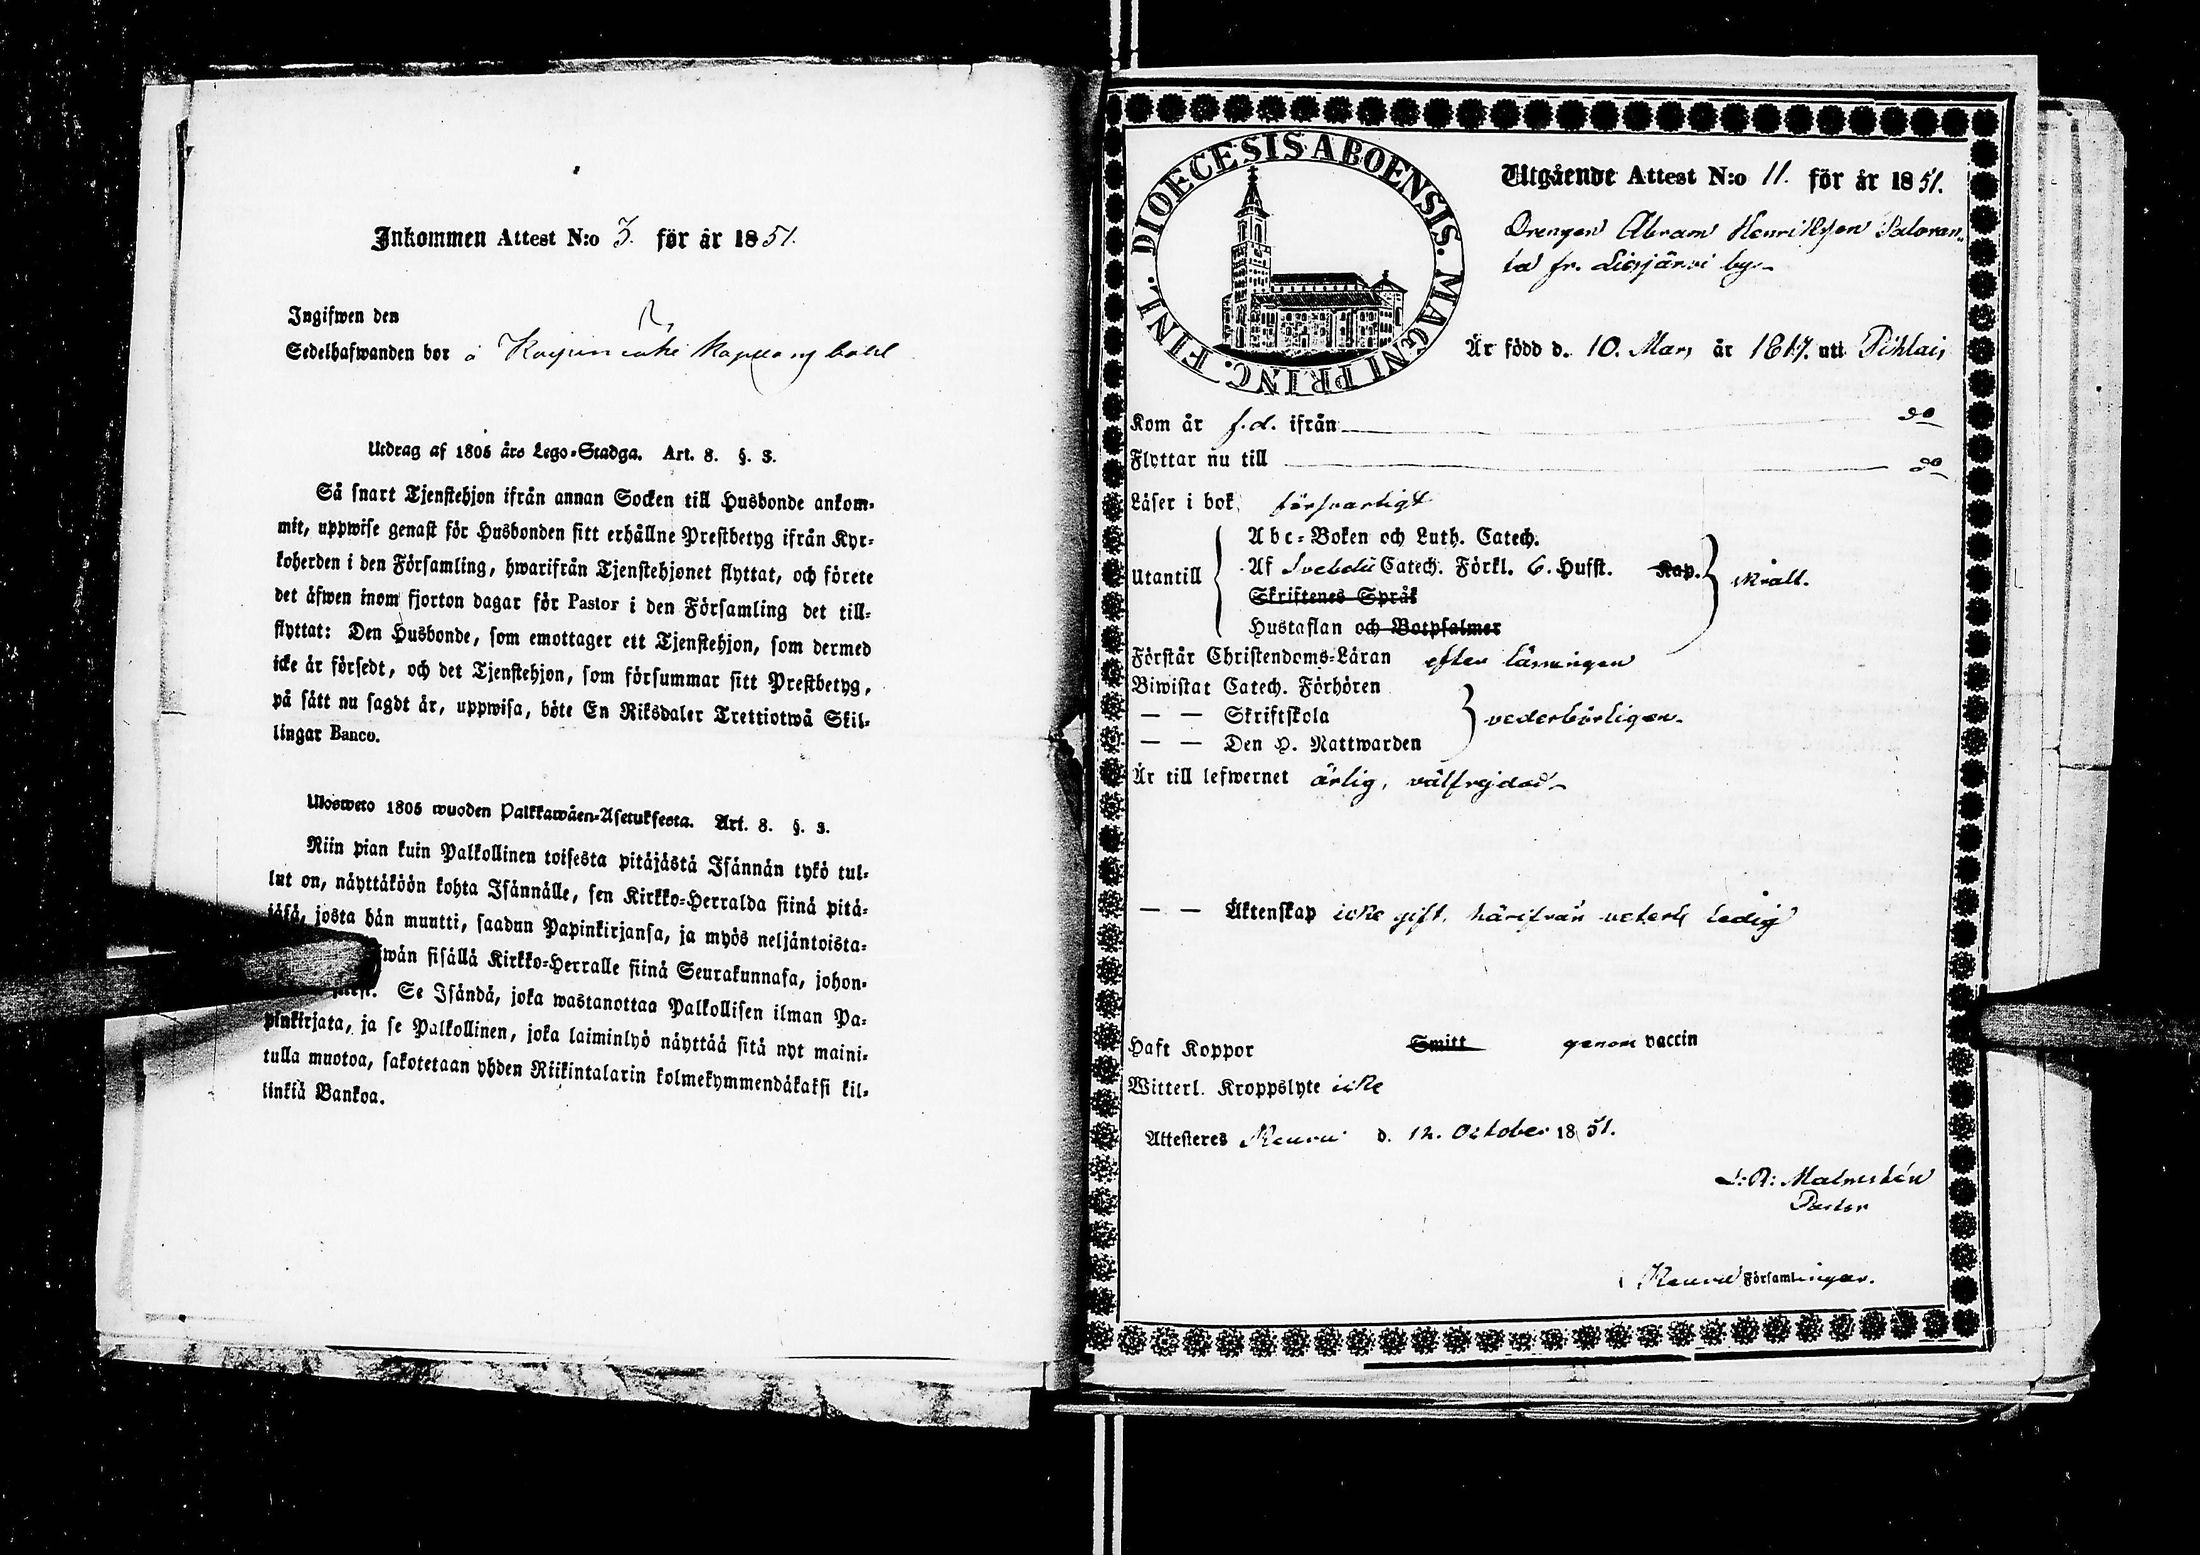 Inkommen Attest N:o 3. för år 1851.
Ingifwen den
Sedelhafwanden bor å
Utdrag af 1805 års Lego-Stadga. Art. 8. §. 3.
Så snart Tjenstehjon ifrån annan Socken till Husbonde ankom-
mit, uppwise genast för Husbonden sitt erhållne Prestbetyg ifrån Kyr-
koherden i den Församling, hwarifrån Tjenstehjonet flyttat, och förete
det äfwen inom fjorton dagar för Pastor i den Församling det till-
flyttat: Den Husbonde, som emottager ett Tjenstehjon, som dermed
icke är försedt, och det Tjenstehjon, som försummar sitt Prestbetyg,
på sätt nu sagdt är, uppwisa, böte En Riksdaler Trettiotwå Skil-
lingar Banco.
Ulosweto 1805 wuoden Palkkawäen-Asetuksesta. Art. 8. §. 3.
Niin pian kuin Palkollinen toisesta pitäjästä Isännän tykö tul-
lut on, näyttäköön kohta Isännälle, sen Kirkko-Herralda siinä pitä-
jäsä, josta hän muutti, saadun Papinkirjansa, ja myös neljäntoista-
wän sisällä Kirkko-Herralle siinä Seurakunnasa, johon-
Se Isändä, joka wastanottaa Palkollisen ilman Pa-
pinkirjata, ja se Palkollinen, joka laiminlyö näyttää sitä nyt maini-
tulla muotoa, sakotetaan yhden Riikintalarin kolmekymmendäkaksi kil-
linkiä Bankoa.
DIOECESIS ABOENSIS. MAGNI PRINC. FINL.
Utgående Attest N:o 11. för år 1851.
Drengen Abram Henriksson Saloran-
ta fr. Liesjärvi by
Är född d. 10. Mars år 1817. uti Pihlais
Kom år f.d. ifrån do
Flyttar nu till do
Läser i bok försvarligt
Abc-Boken och Luth. Catech.
Utantill Af Svebelii Catech. Förkl. 6. Hufst. Kap. svalt.
Skriftenes Språk
Hustaflan och Botpsalmer
Förstår Christendoms-Läran efter läsningen
Biwistat Catech. Förhören
— — Skriftskola vederbörligen
— — Den H. Nattwarden
Är till lefwernet ärlig, välfrejdad
— — Äktenskap icke gift, härifrån veterl. ledig
Haft Koppor Smitt genom vaccin
Witterl. Kroppslyte icke
Attesteres Keuru d. 12. October 1851.
Malmstén
Pastor
Keuru Församlingar.